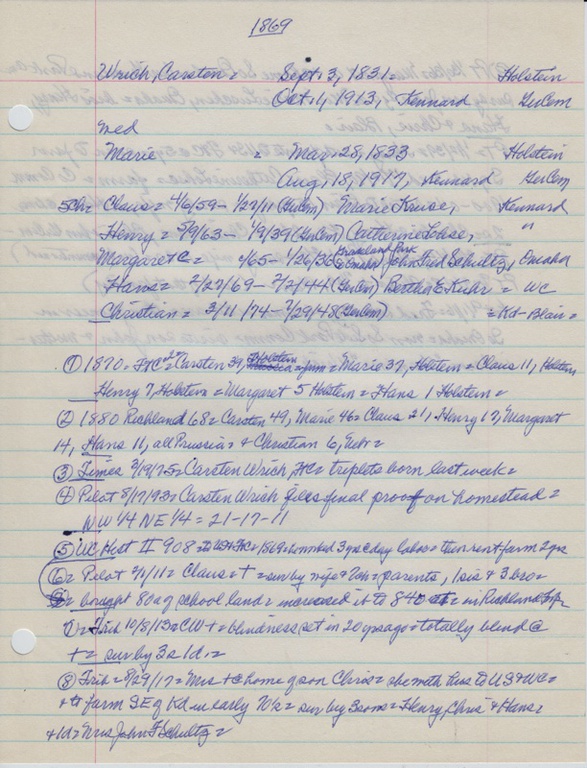 1869
Wrich, Carsten = Sept 13, 1831 = Holstein
Oct 1, 1913, Kennard GerCem
wed
Marie = Mar 28, 1833 Holstein
Aug, 18, 1917, Kennard GerCem
5ch = Claus = 4/6/59 - 1/27/11 (GerCem) Marie Kruse, Kennard
Henry = 5/9/63 - 1/9/39 (GerCem) Catherine Lohse, "
Margaret C = 4/65 - 1/26/36 (Graceland Park Omaha) John Fred Schultz, Omaha
Hans = 2/27/69 - 7/2/44 (GerCem) Bertha E Kuhr = WC
Christian = 3/11/74 - 7/29/48 (GerCem) = Kd - Blair =
① 1870 = Carsten 39, Holstein = Marie 37, Holstein = Claus 11, Holstein
Henry 7, Holstein = Margaret 5 Holstein = Hans 1 Holstein =
② 1880 Richland 68 = Carsten 49, Marie 46 = Claus 21, Henry 17, Margaret
14, Hans 11, all Prussia = & Christian 6, Nebr =
③ Times 2/19/75 = Carsten Wrich, FC = triplets born last week =
④ Pilot 8/17/93 = Carsten Wrich files final proof on homestead =
NW 1/4 NE 1/4 = 21-17-11
⑤ WC Hist II 908 = to US & FC = 1869 = worked 3 yrs day labor = then rent farm 2 yrs
⑥ = Pilot 2/1/11 = Claus = + = sur by wife & 7ch = parents, 1 sis & 3 bro =
= bought 80a of school land = increased it to 840 = in Richland Twp
⑦ = Trib 10/8/13 = CW + = blindness set in 20 yrs ago = totally blind @
+ = sur by 3s 1d =
⑧ Trib = 8/29/17 = Mrs + @ home of son Chris = she with hus to US & WC =
+ to farm SE of Kd in early 70's = sur by 3 sons = Henry, Chris & Hans =
+ 1d = Mrs John F Schultz =